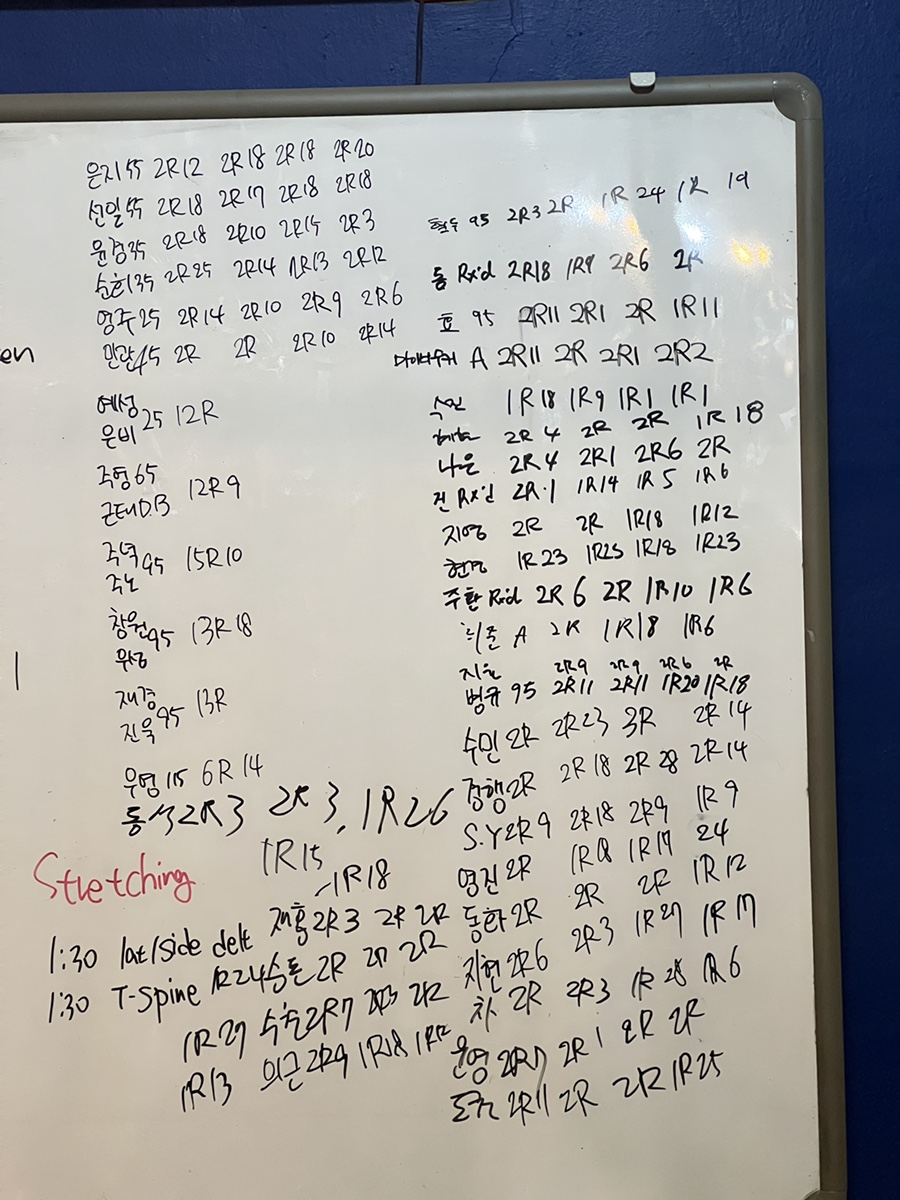 은지 55 2R12 2R18 2R18 2R20
선일 55 2R18 2R17 2R18 2R18
윤경 35 2R18 2R10 2R15 2R3
순희 35 2R25 2R14 1R13 2R12
영주 25 2R14 2R10 2R9 2R6
민관 45 2R 2R 2R10 2R14
en
예성
은비 25 12R
주형 65
근태 D.B 12R9
주혁
95 15R10
창원
95 13R18
재경
진욱 95 13R
우형 115 6R14
동석 2R3 2R3, 1R26
1R15
Stretching
1R18
1:30 lat/side delt 재홍 2R3 2R 2R
1:30 T-spine 1R24 승돈 2R 2R
1R27 2R7 2R
1R13 의근 2R9 1R18 1R12
95 2R3 2R 1R24 1R 19
동 Rx'd 2R18 1R9 2R6 2R
호 95 2R11 2R1 2R 1R11
A 2R11 2R 2R1 2R2
수민 1R18 1R9 1R1 1R1
2R4 2R 2R 1R18
나은 2R4 2R1 2R6 2R
건 Rx'd 2R1 1R14 1R5 1R6
지영 2R 2R 1R18 1R12
현경 1R23 1R23 1R18 1R23
주환 Rxd 2R6 2R 1R10 1R6
A 2R 1R18 1R6
2R9 2R9 2R6 2R
병규 95 2R11 2R11 1R20 1R18
수민 2R 2R23 3R 2R14
경행 2R 2R18 2R28 2R14
S.Y 2R9 2R18 2R9 1R9
영진 2R 1R18 1R17 24
동화 2R 2R 2R 1R12
지현 2R6 2R3 1R27 1R17
차 2R 2R3 1R28 1R6
운영 2R7 2R1 2R 2R
2R11 2R 2R 1R25